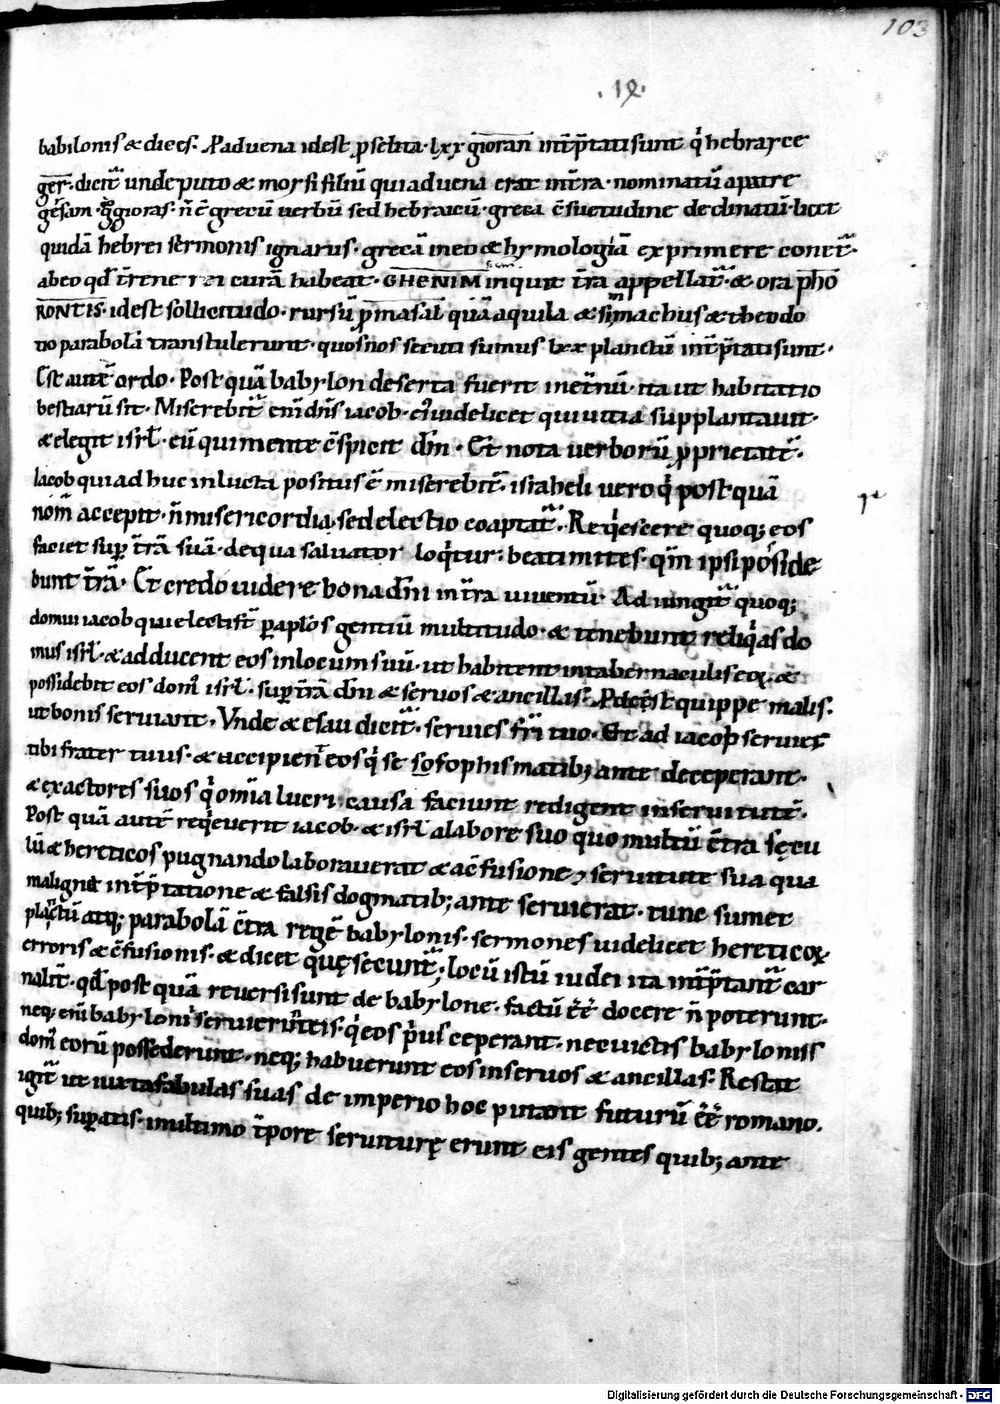 103
.19.
babilonis & dices. P aduena idest p̱selita. lxx gioran int̄p̄tati sunt q̇ hebrayce
ger. dicit̄ unde puto & moysi filiū qui aduena erat in t̄ra. nominatū a patre
gersam. g̊ gioras. n̄ ē grecū uerbū sed hebraicū. greca c̄suetudine declinatū. licet
quidā hebrei sermonis ignarus. grecā in eo & hymologiā exprimere conet̄.
ab eo qd̄ t̄rene rei curā habeat. GHENIM inquit t̄ra appellat̄. & ora phō
RONTIS. idest sollicitudo. rursū p̱ masal quā aquila & simmachus & theodo
tio parabolā transtulerunt. quos nos secuti sumus lxx planctū int̄p̄tati sunt.
Est autē ordo. Post quā babylon deserta fuerit in et̄nū. ita ut habitatio
bestiarū sit. Miserebit̄ em̄ dn̄s iacob. ei uidelicet qui uitia supplantauit.
& elegit isrl̄. eū qui mente c̄spicit dm̄. Et nota uerborū p̱prietatē.
Iacob qui adhuc in lucta positus ē miserebit̄. israheli uero q̇ postquā
nom̄ accepit. n̄ misericordia. sed electio coaptat̄. Reqescere quoq; eos
faciet sup̱ t̄rā suā. de qua saluator loqtur. beati mites. qm̄ ipsi posside
bunt t̄rā. Et credo uidere bona dn̄i in t̄ra uiuentū. Adiungit̄ quoq;
domui iacob qui electi st̄ p̱ apl̄os gentiū multitudo. & tenebunt reliqas do
mus isrl̄. & adducent eos in locum suū. ut habitent in tabernaculis eoꝝ. &
possidebit eos dom̄ isrl̄. sup̱ t̄rā dn̄i & seruos & ancillas. P dest quippe malis.
ut bonis seruiant. Vnde & esau dicit̄. seruies fr̄i tuo. Et ad iacob seruiet
tibi frater tuus. & accipient eos q̇ se sofophismatib; ante deceperant.
& exactores suos q̇ om̄ia lucri causa faciunt redigent in seruitutē.
Post quā autē reqeuerit iacob. & isrl̄ a labore suo quo multū c̄tra sęcu
lū & hereticos pugnando laborauerat & a c̄fusione, seruitute sua qua
maligna int̄p̄tatione & falsis dogmatib; ante seruierat. tunc sumet
planctū atq; parabolā c̄tra regē babylonis. sermones uidelicet hereticoꝝ
erroris & c̄fusionis. & dicet quę secunt̄; locū istū iudei ita int̄p̄tant̄ car
nalit̄. qd̄ post quā reuersi sunt de babylone. factū ēē docere n̄ poterunt.
neq. em̄ babylonii seruierunt eis. q̇ eos p̄us ceperant. nec uictis babyloniis
dom̄ eorū possederunt. neq; habuerunt eos in seruos & ancillas. Restat
igit̄ ut iuxta fabulas suas de imperio hoc putant futurū ēē romano.
quib; sup̱atis. in ultimo t̄pore seruiturę erunt eis gentes quib; ante
Digitalisierung gefördert durch die Deutsche Forschungsgemeinschaft - DFG